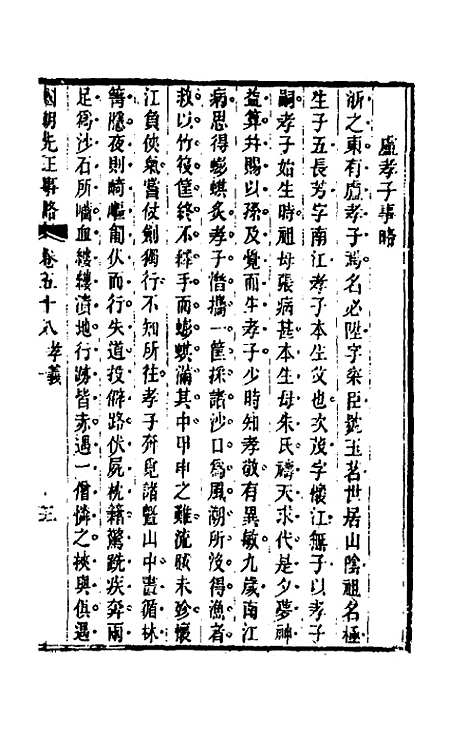 盧孝子事略
浙之東有盧孝子焉名必陞字寀臣號玉茗世居山陰祖名極
生子五長芳字南江孝子本生父也次茂字懷江無子以孝子
嗣孝子始生時祖母張病甚本生母朱氏禱天求代是夕夢神
益算幷賜以孫及覺而生孝子少時知孝敬有異敏九歲南江
病思得蟛蜞炙孝子潛攜一筐採諸沙口爲風潮所沒得漁者
救以竹筏筐終不釋手而蟛蜞滿其中甲申之難流賊未殄懷
江負俠氣嘗仗劍獨行不知所往孝子奔覓諸盤山中晝循林
箐隱夜則崎嶇匍伏而行失道投僻路伏屍枕籍驚跣疾奔兩
足爲沙石所嚙血縷縷漬地行跡皆赤遇一僧憐之挾與俱遇
國朝先正事略 卷五十八 孝義 三